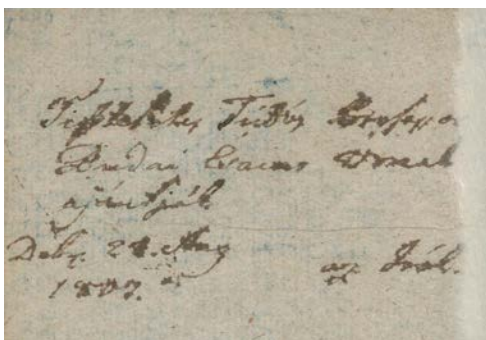 Tiszteletes Tudós Professor
Budai Esaias Urnak
ajánlják
Debr. 24. Aug
1807.
az Irók.